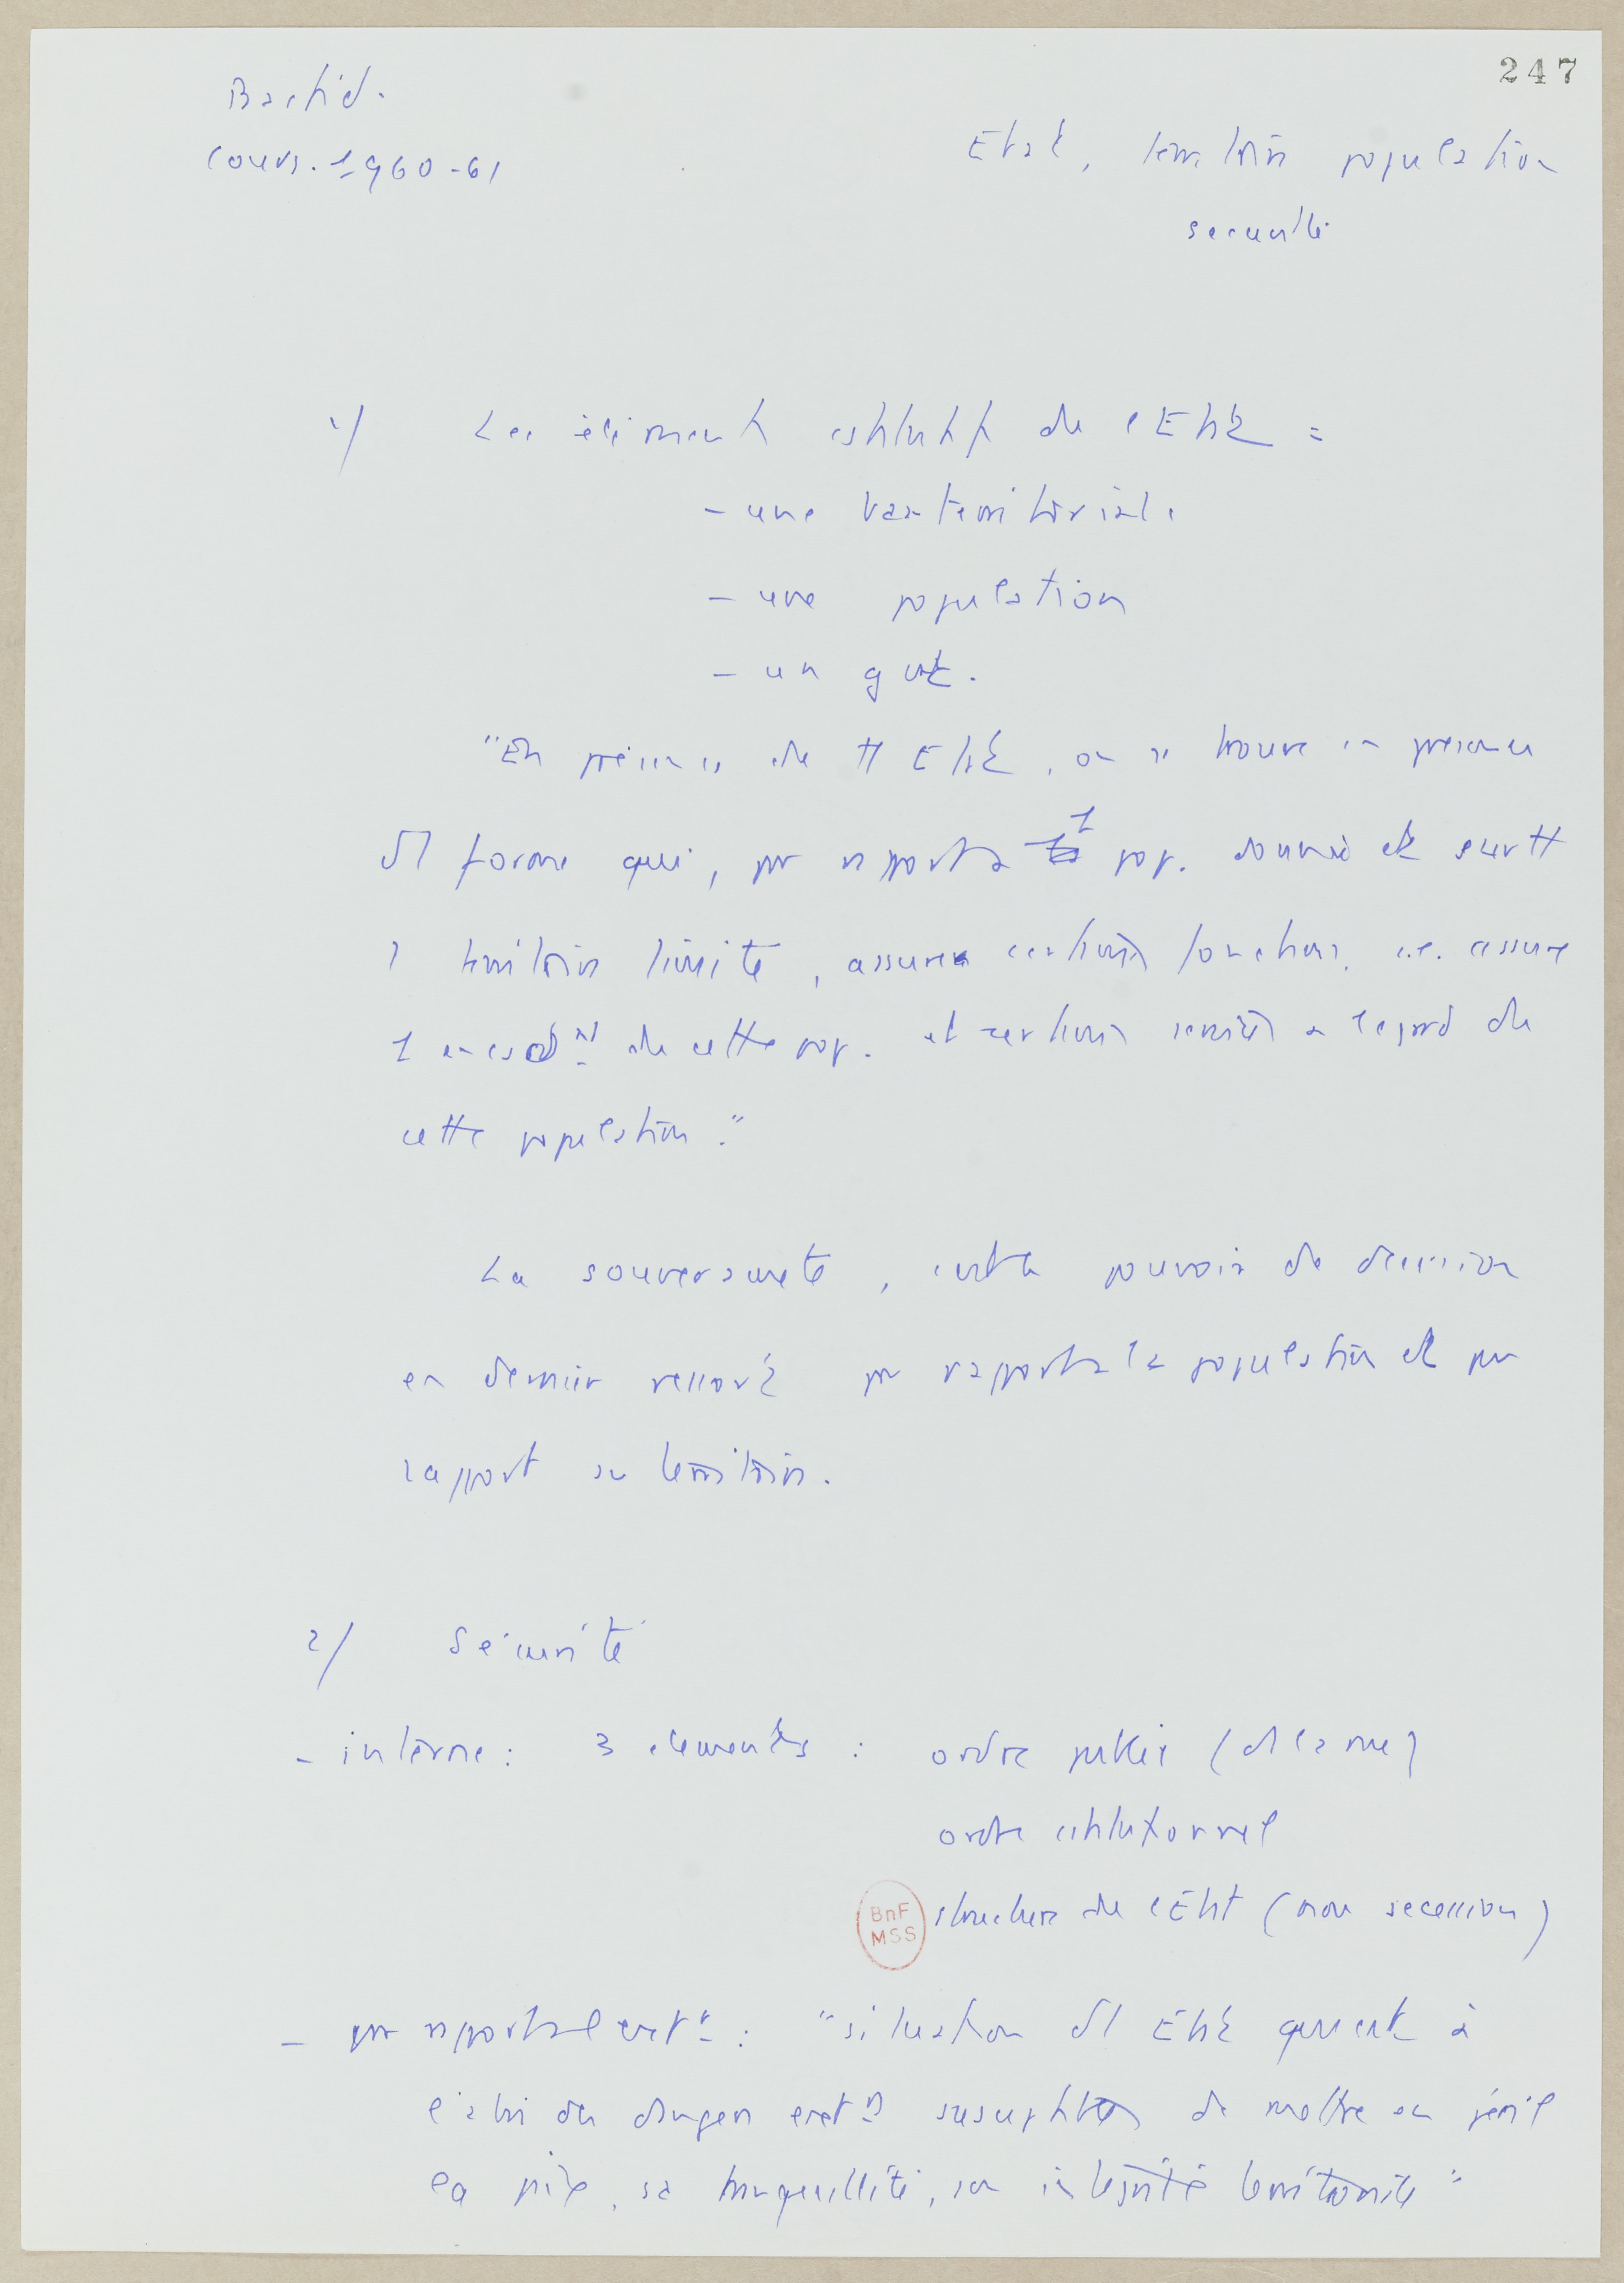 247
Bastid.
Cours. 1960-61
Etat, territoire population
securité
1/ Les éléments cstitutifs de l'Etat =
- une base territoriale
- une population
- un gvt.
"En présence de tt Etat, on se trouve en presence
d'1 forme qui, par rapport à 1 pop. donnée et surtt
1 territoire limité, assure certaines fonctions, i.e. assure
1 de cette pop. et certains services a l'egard de
cette population."
La souveraineté, c'est le pouvoir de decision
en dernier ressort par rapport à la population et par
rapport au territoire.
2/ Sécurité
- interne : 3 elements : ordre public (ds la rue)
ordre cstitutionnel
BnF
MSS
structure de l'Etat (non secession)
- par rapport à l'extr : "situation d'1 Etat qui est à
l'abri des dangers extrs susceptibles de mettre en péril
sa paix, sa tranquillité, son intégrité territoriale"